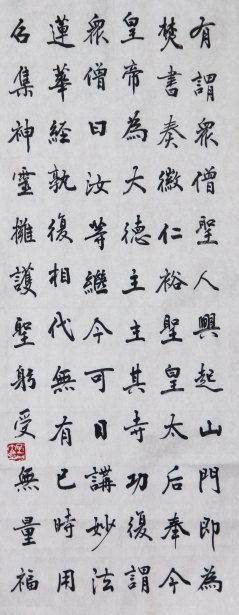 有謂眾僧聖人興起山門即為
焚書奏徽仁裕聖皇太后奉今
皇帝為大德主主其寺功復謂
眾僧曰汝等繼今可日講妙法
蓮華經孰復相代無有已時用
召集神靈擁護聖躬受無量福